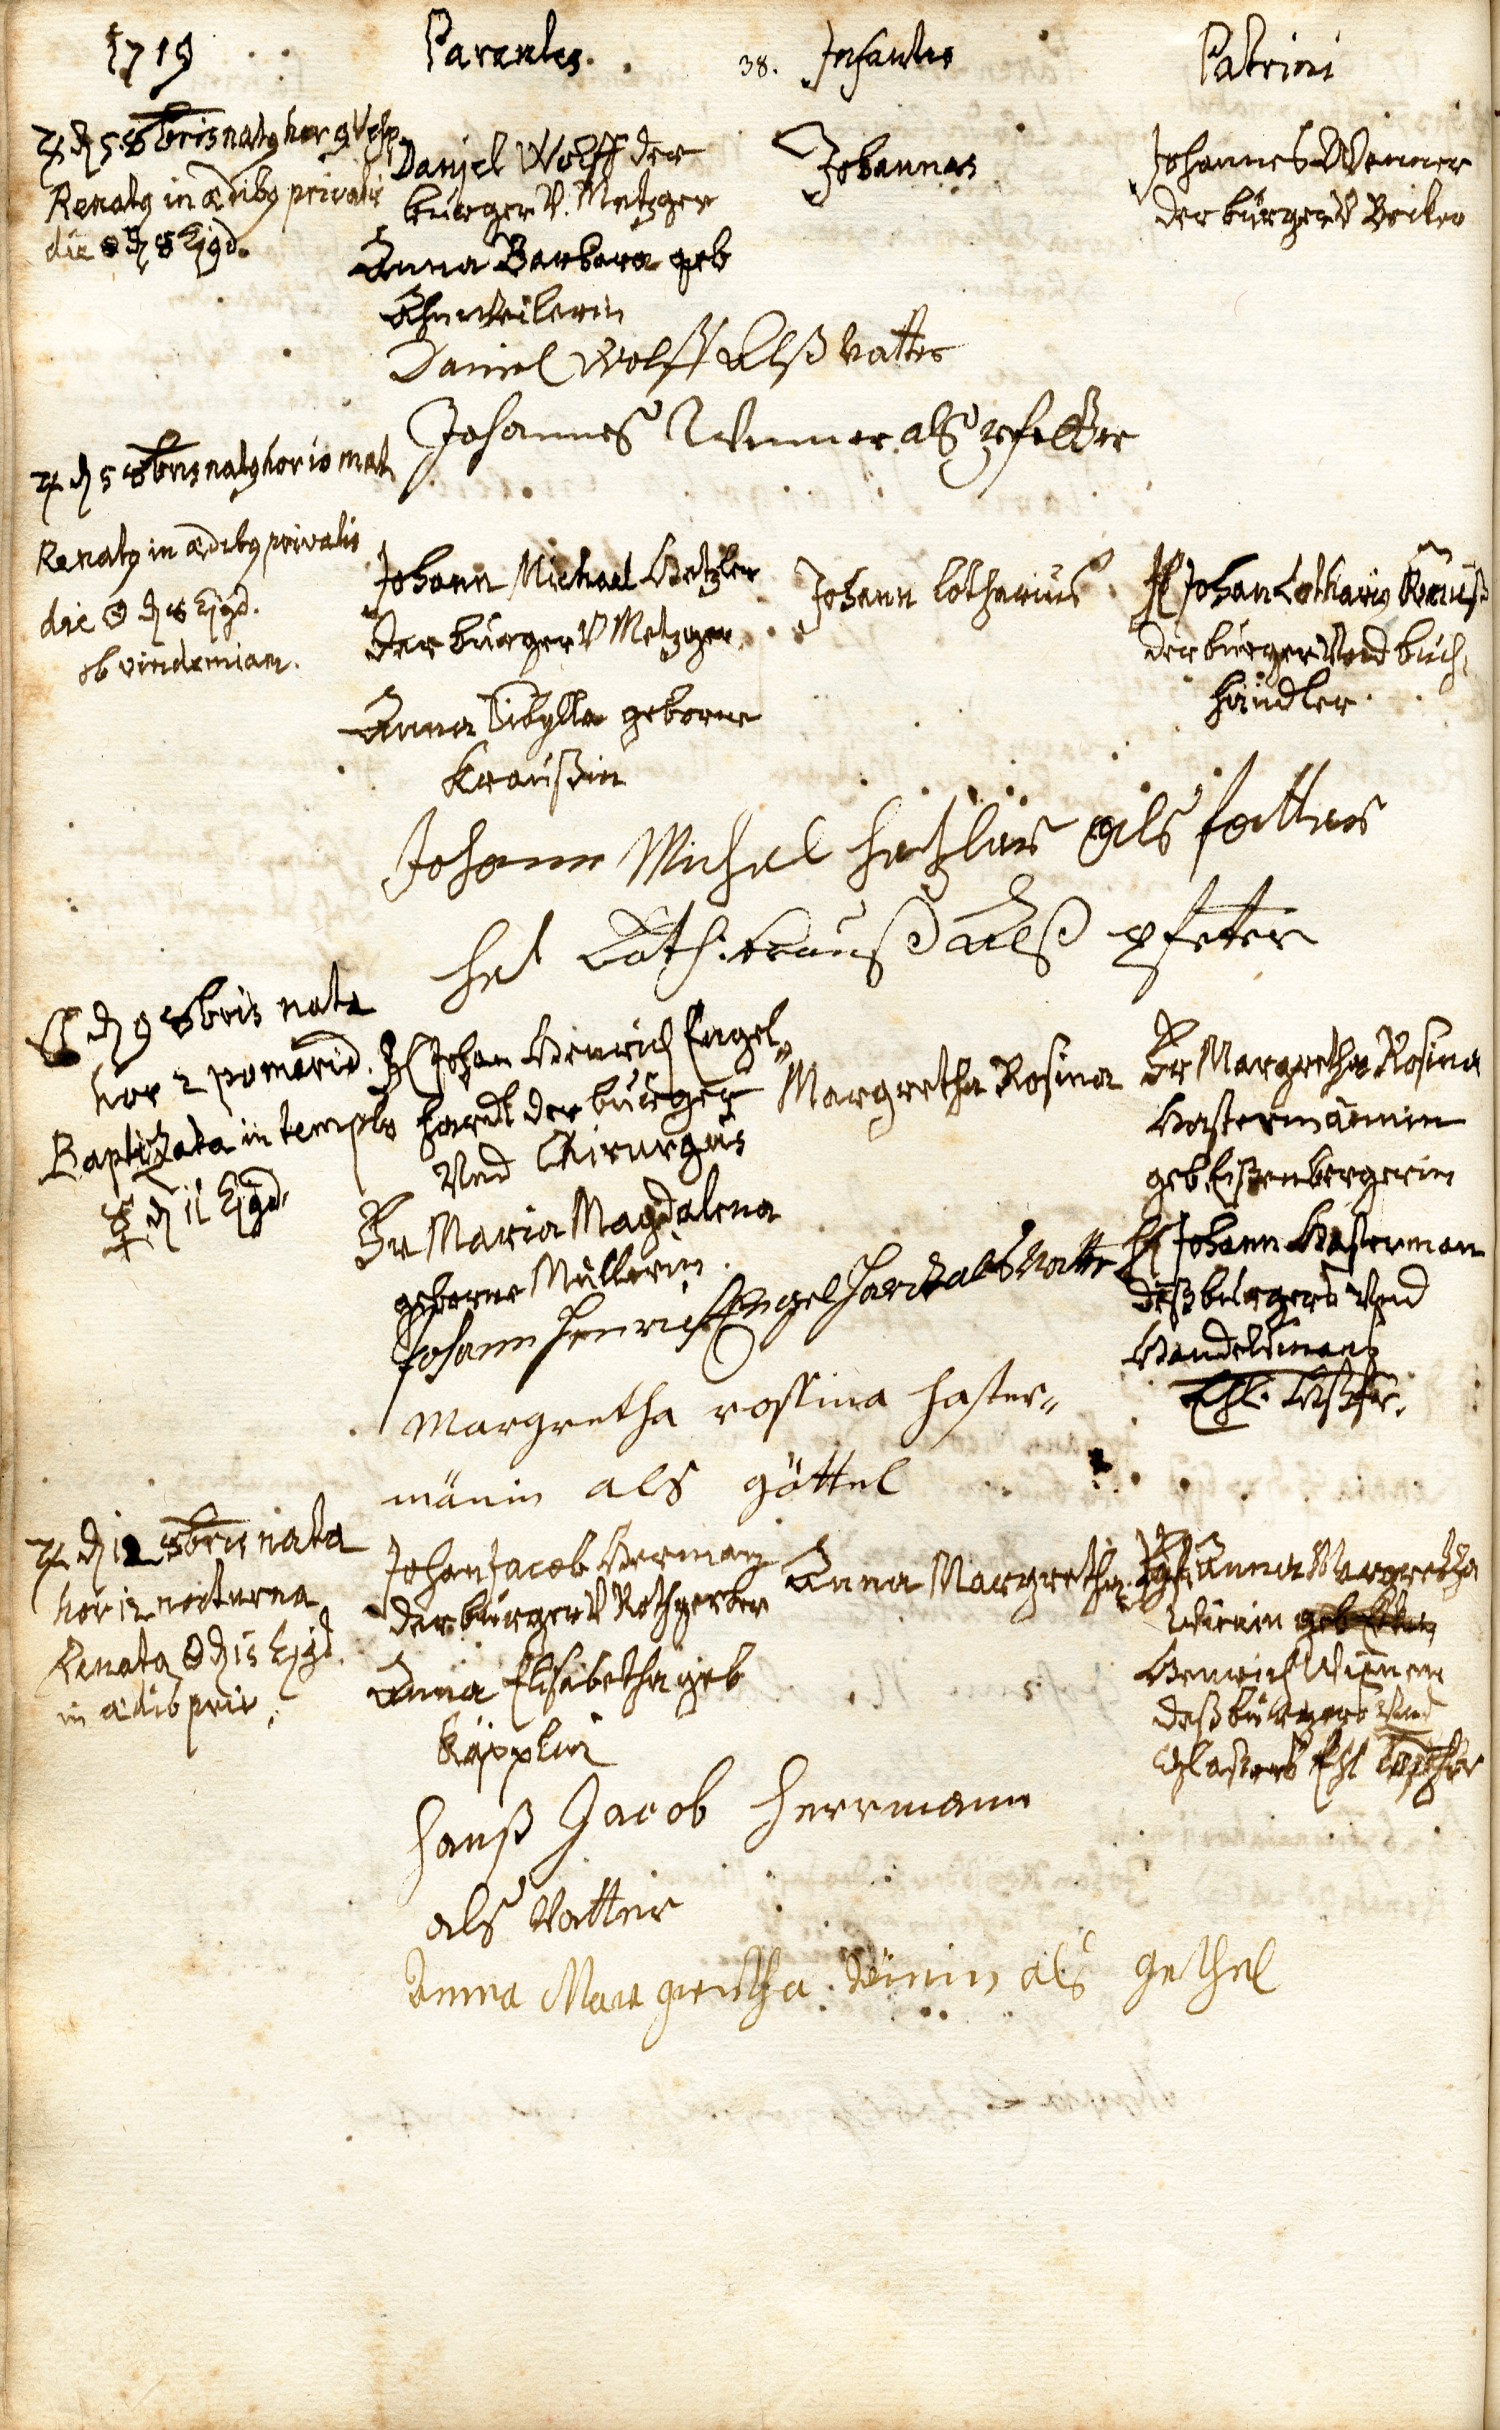 1719 Parentes. 38. Infantes Patrini
♃ d 5. 8bris natq hor 9 Vesp
Renatq in ædibq privatis
die ☉ d 8 Ejqd.
Daniel Wolff der
burger V. Metzger
Anna Barbara geb
Johannes
Johannes Wenner
der burger V Becker
Daniel Wolff Alß Vatter
Johannes Wenner als pfetter
♃ d 5 8bris natq hor 10 mat
Renatq in ædibq privatis
die ☉ d 8 Ejqd.
ob vindemiam.
Johann Michael Hetzler
der burger V Metzger
Anna Sibylla geborne
Kraußin
Johann Lotharius
H Johan Lothariq Krauß
der burger Vnd buch,
händler.
Johann Michel hetzler als fatter
Loth: Krauß Alß pfetter
d 9 8bris nata
hor 2 pomerid.
Baptizata in templo
☿ d 11 Ejqd.
H Johan Henrich Engel„
hardt der burger
Vnd Chirurgus
Fr Maria Magdalena
geborne Müllerin.
Margretha Rosina
Fr Margretha Rosina
Hastermännin
geb. Eißenbergerin
H Johann Hasterman
deß burgers Vnd
Handelsmans
Johann Henrich Engelhardt als Vatter
Margretha rossina haster„
mänin als göttel
♃ d 12 8bris nata
hor 12 nocturna
Renata ☉ d 15 Ejqd.
in ædib priv.
Johan Jacob Herman
der burger V Rothgerber
Anna Elisabetha geb
Käpplin
Anna Margretha
Anna Margretha
geb
Henrich
deß burgers Vnd
Glasers Ehl
Hanß Jacob Herrmann
als Vatter
Anna Margretha als gethel